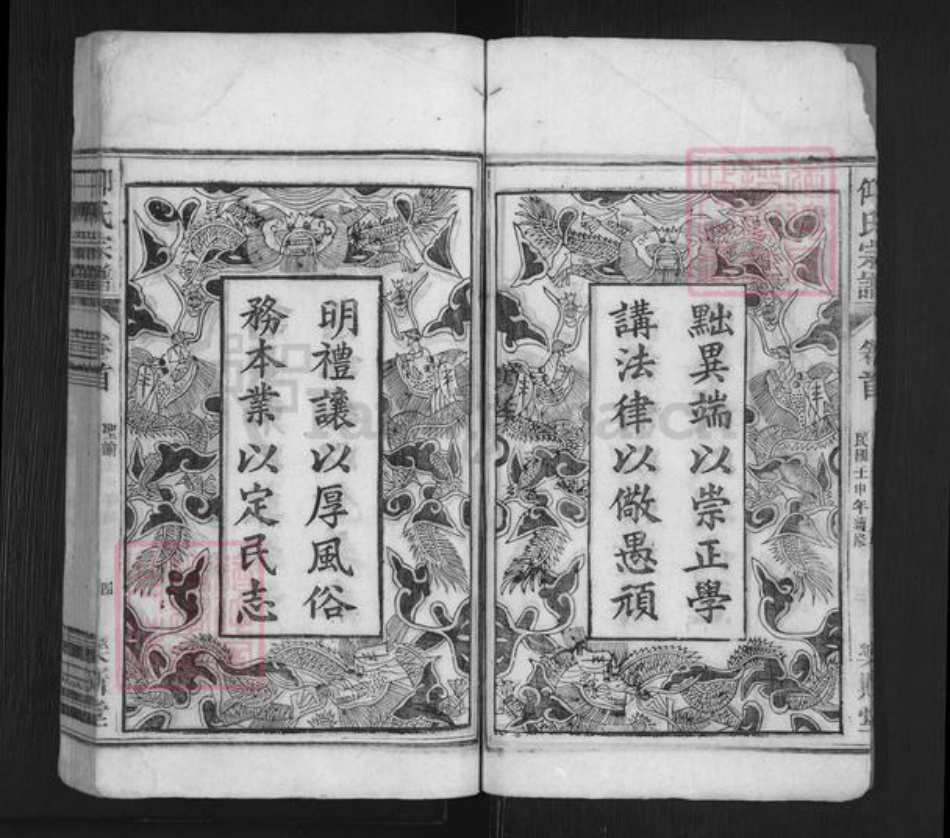 仰氏宗譜
卷首
民國壬申年
黜異端以崇正學
講法律以儆愚頑
明禮讓以厚風俗
務本業以定民志
氏宗譜
卷首
聖諭
四
堂